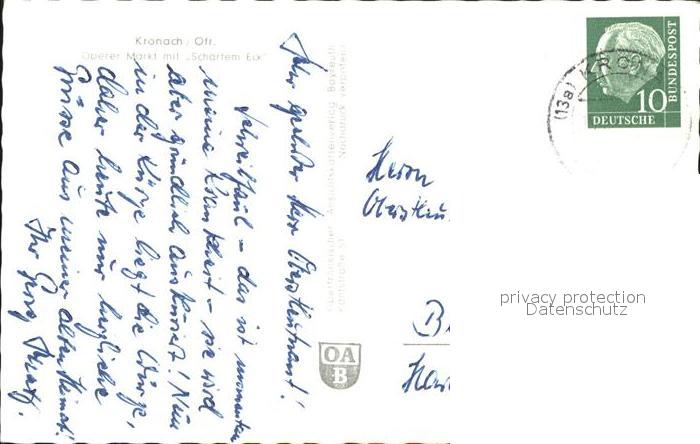 Kronach / Ofr.
Oberer Markt mit „Scharfem Eck"
Sehr geehrter Herr Oberstleutnant!
Schreibfaul - das ist momentan
meine Krankheit - sie wird
aber gründlich auskuriert! Nun
in der Kürze liegt die Würze,
daher heute nur herzliche
Grüsse aus meiner alten Heimat!
Ihr Georg
Oberfränkischer Ansichtskartenverlag Bayreuth
Nachdruck verboten
OA
B
Herrn
Oberstleu
B
DEUTSCHE
BUNDESPOST
10
(13a)
privacy protection
Datenschutz